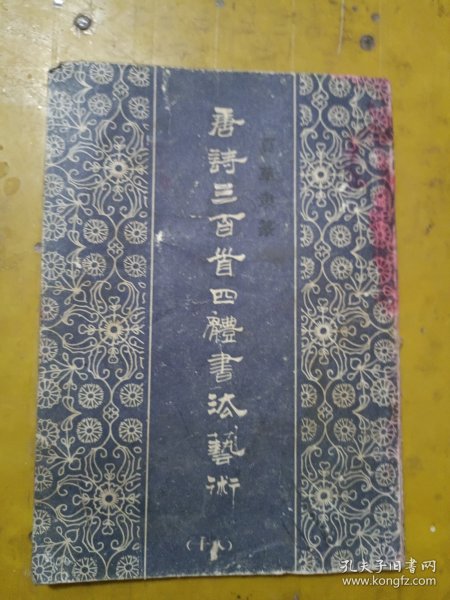 唐詩三百首四體書法藝術
（十八）
孔夫子旧书网
www.kongfz.com